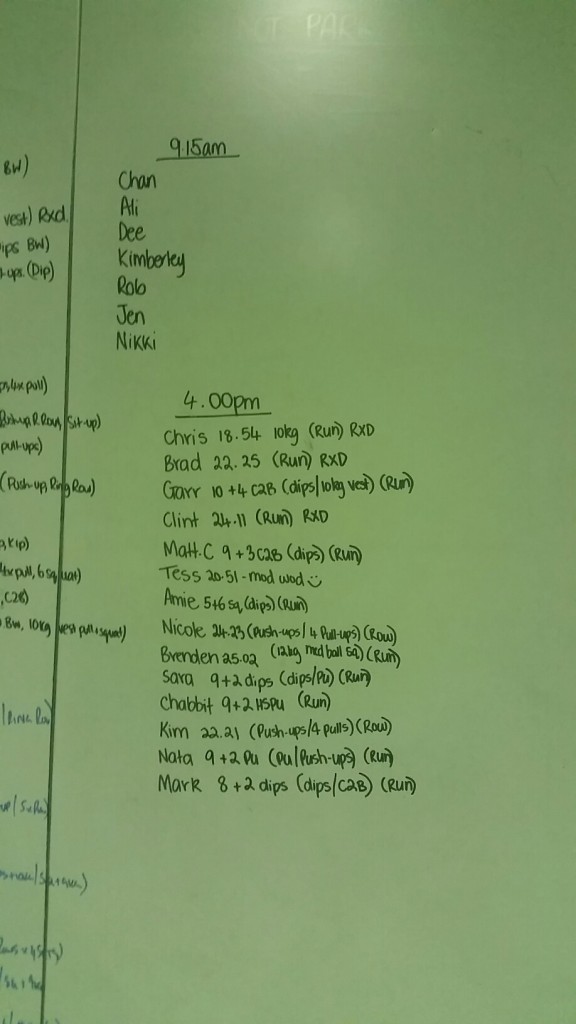 BW)
vest) Rxd.
ips BW)
-ups (Dip)
pull-ups)
(Push-up, Ring Row)
9.15am
Chan
Ali
Dee
Kimberley
Rob
Jen
Nikki
4.00pm
Chris 18.54 10kg (Run) RXD
Brad 22.25 (Run) RXD
Garr 10 + 4 C2B (dips/10kg vest) (Run)
Clint 24.11 (Run) RXD
Matt.C 9 + 3 C2B (dips) (Run)
Tess 20.51 - mod wod
Amie 5+6 sq (dips) (Run)
Nicole 24.23 (Push-ups/4 Pull-ups) (Row)
Brenden 25.02 (12kg med ball sq) (Run)
Sara 9+2 dips (dips/Pu) (Run)
Chabbit 9+2 HSPU (Run)
Kim 22.21 (Push-ups/4 pulls) (Row)
Nata 9 +2 Pu (Pu/Push-ups) (Run)
Mark 8 +2 dips (dips/C2B) (Run)